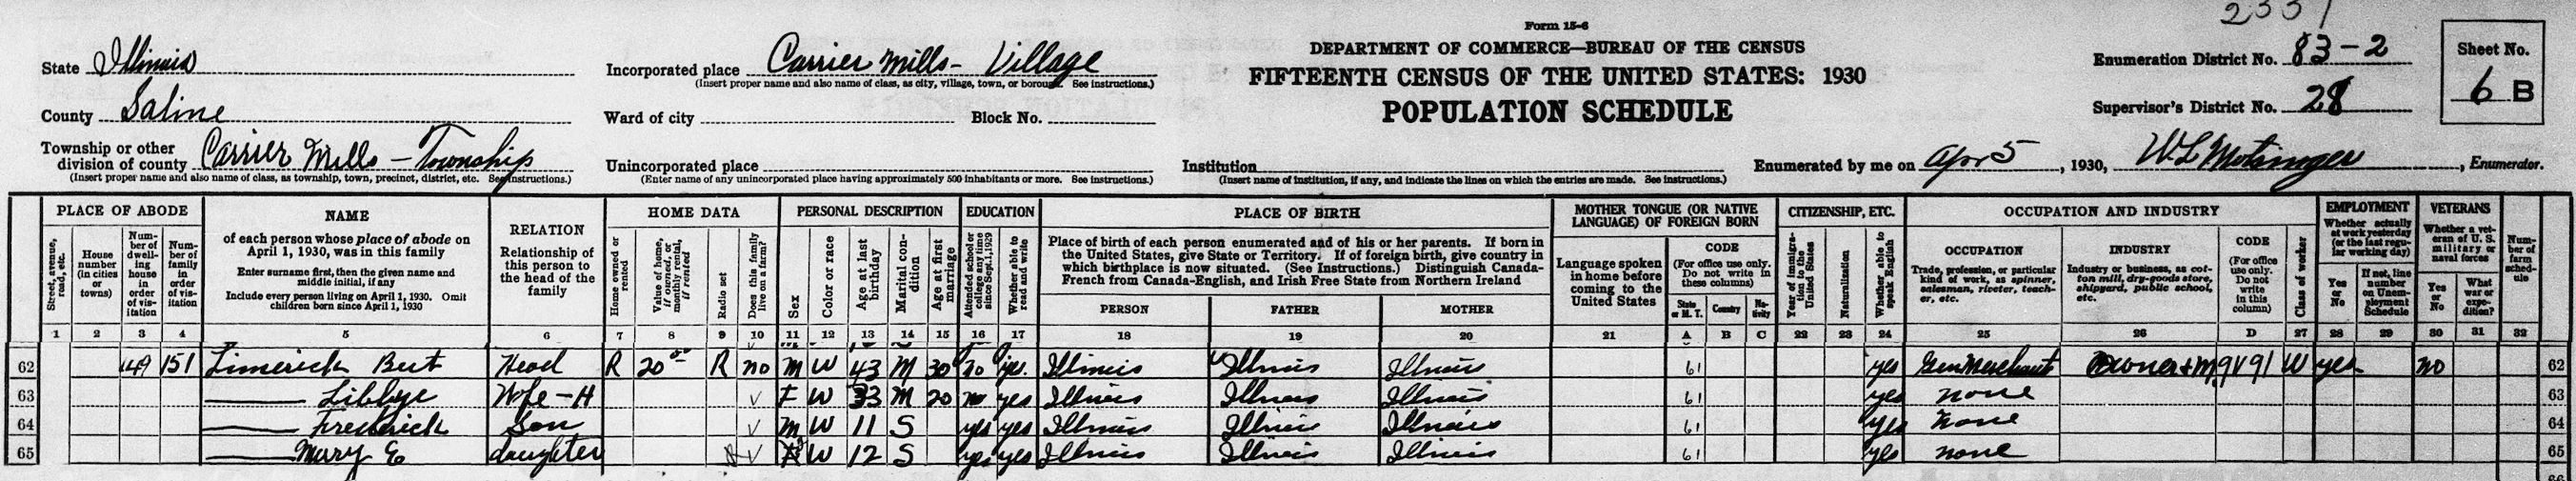 2331
Form 15-6
DEPARTMENT OF COMMERCE—BUREAU OF THE CENSUS
FIFTEENTH CENSUS OF THE UNITED STATES: 1930
POPULATION SCHEDULE
State Illinois
County Saline
Township or other division of county Carrier Mills - Township
(Insert proper name and also name of class, as township, town, precinct, district, etc. See instructions.)
Incorporated place Carrier Mills - Village
(Insert proper name and also name of class, as city, village, town, or borough. See instructions.)
Ward of city Block No.
Unincorporated place
(Enter name of any unincorporated place having approximately 500 inhabitants or more. See instructions.)
Institution
(Insert name of institution, if any, and indicate the lines on which the entries are made. See instructions.)
Enumeration District No. 83-2
Supervisor's District No. 28
Sheet No.
6 B
Enumerated by me on Apr 5, 1930, W L Motsinger, Enumerator.
PLACE OF ABODE
Street, avenue, road, etc.
House number (in cities or towns)
Number of dwelling house in order of visitation
Number of family in order of visitation
NAME
of each person whose place of abode on April 1, 1930, was in this family
Enter surname first, then the given name and middle initial, if any
Include every person living on April 1, 1930. Omit children born since April 1, 1930
RELATION
Relationship of this person to the head of the family
HOME DATA
Home owned or rented
Value of home, if owned, or monthly rental, if rented
Radio set
Does this family live on a farm?
PERSONAL DESCRIPTION
Sex
Color or race
Age at last birthday
Marital condition
Age at first marriage
EDUCATION
Attended school or college any time since Sept. 1, 1929
Whether able to read and write
PLACE OF BIRTH
Place of birth of each person enumerated and of his or her parents. If born in the United States, give State or Territory. If of foreign birth, give country in which birthplace is now situated. (See Instructions.) Distinguish Canada-French from Canada-English, and Irish Free State from Northern Ireland
PERSON FATHER MOTHER
MOTHER TONGUE (OR NATIVE LANGUAGE) OF FOREIGN BORN
Language spoken in home before coming to the United States
CODE
(For office use only. Do not write in these columns)
State or M. T. Country Nativity
CITIZENSHIP, ETC.
Year of immigration to the United States
Naturalization
Whether able to speak English
OCCUPATION AND INDUSTRY
OCCUPATION
Trade, profession, or particular kind of work, as spinner, salesman, riveter, teacher, etc.
INDUSTRY
Industry or business, as cotton mill, dry-goods store, shipyard, public school, etc.
CODE
(For office use only. Do not write in this column)
Class of worker
EMPLOYMENT
Whether actually at work yesterday (or the last regular working day)
Yes or No
If not, line number on Unemployment Schedule
VETERANS
Whether a veteran of U. S. military or naval forces
Yes or No
What war or expedition?
Number of farm schedule
1 2 3 4 5 6 7 8 9 10 11 12 13 14 15 16 17 18 19 20 21 A B C 22 23 24 25 26 D 27 28 29 30 31 32
62 149 151 Limerick Bert Head R 20 R no M W 43 M 30 no yes Illinois Illinois Illinois 61 yes Gen Merchant Owner + M 9V91 W yes no 62
63 Libbye Wife-H V F W 33 M 20 no yes Illinois Illinois Illinois 61 yes none 63
64 Frederick Son V M W 11 S yes yes Illinois Illinois Illinois 61 yes none 64
65 Mary E daughter V F W 12 S yes yes Illinois Illinois Illinois 61 yes none 65